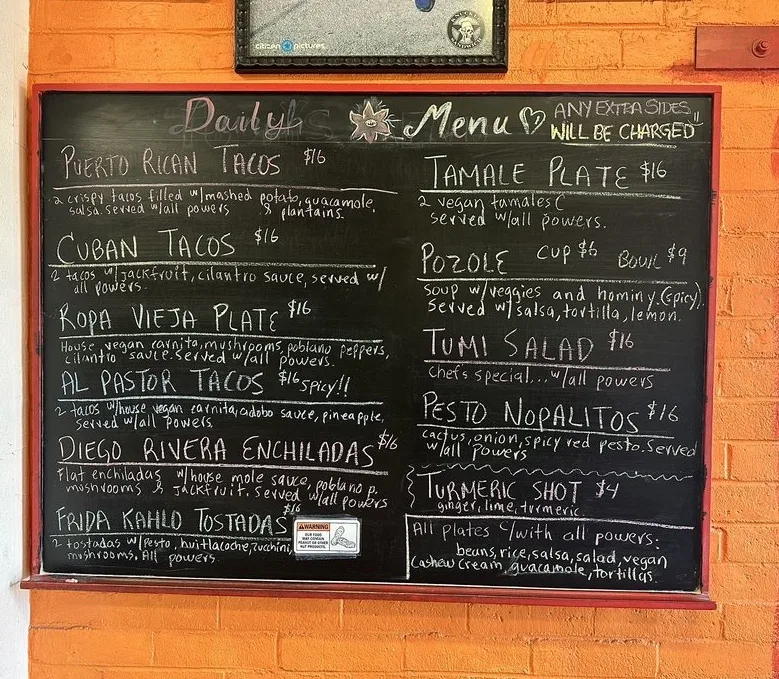 citizen pictures
Daily Menu
ANY EXTRA SIDES
WILL BE CHARGED"
PUERTO RICAN TACOS $16
2 crispy tacos filled w/mashed potato, guacamole,
salsa. served w/all powers & plantains.
CUBAN TACOS $16
2 tacos w/jackfruit, cilantro sauce, served w/
all powers.
ROPA VIEJA PLATE $16
House, vegan carnita, mushrooms, poblano peppers,
cilantro sauce. served w/all powers.
AL PASTOR TACOS $16 spicy!!
2 tacos w/house vegan carnita, adobo sauce, pineapple,
served w/all powers
DIEGO RIVERA ENCHILADAS $16
Flat enchiladas w/house mole sauce, poblano p.
moshrooms & jackfruit. served w/all powers
FRIDA KAHLO TOSTADAS $16
2 tostadas w/pesto, huitlacoche, zucchini,
mushrooms. All powers.
WARNING
OUR FOOD
MAY CONTAIN
PEANUT OR OTHER
NUT PRODUCTS.
TAMALE PLATE $16
2 vegan tamales (
served w/all powers.
POZOLE CUP $6 BOWL $9
soup w/veggies and hominy. (spicy).
Served w/salsa, tortilla, lemon.
TUMI SALAD $16
chefs special... w/all powers
PESTO NOPALITOS $16
cactus, onion, spicy red pesto. Served
w/all powers
TURMERIC SHOT $4
ginger, lime, turmeric
All plates c/with all powers:
beans, rice, salsa, salad, vegan
cashew cream, guacamole, tortillas.